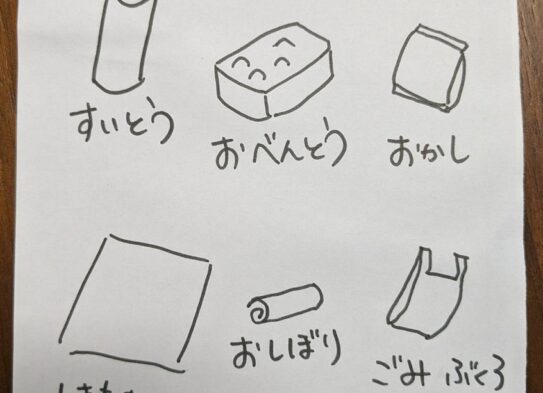 すいとう
おべんとう
おかし
おしぼり
ごみぶくろ